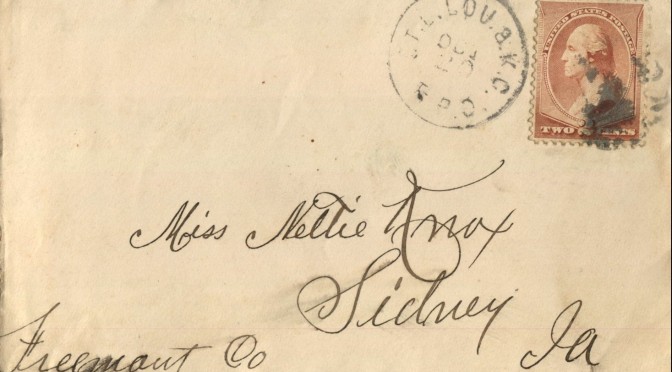 ST. LOU. & K.C.
R.P.O.
UNITED STATES POSTAGE
TWO CENTS
Miss Nettie Knox
Sidney
Freemont Co Ia